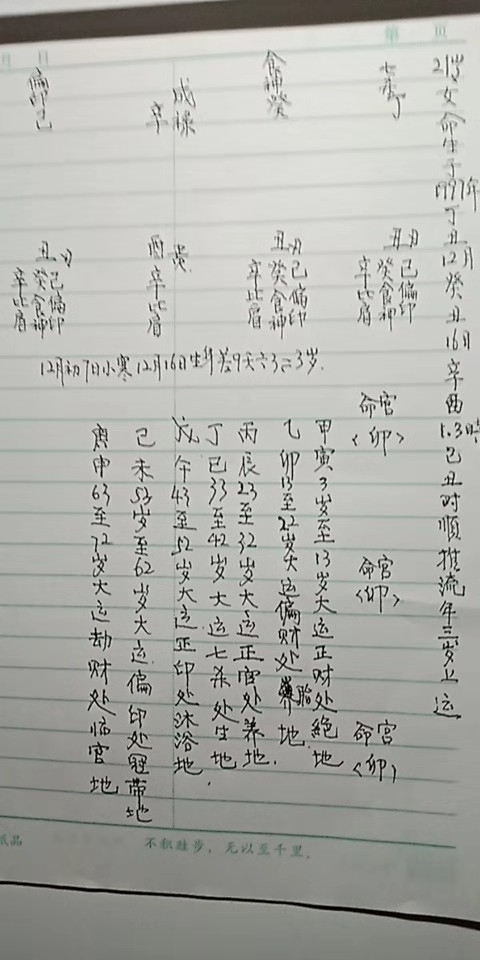 第 页
月 日
21岁女命生于1997年丁丑12月癸丑16日辛酉1.3時己丑时順推流年三岁上运
七杀丁
食神癸
成禄
辛
偏印己
丑月
己偏印
癸食神
辛比肩
丑月
己偏印
癸食神
辛比肩
酉
辛比肩
丑月
己偏印
癸食神
辛比肩
12月初7日小寒12月16日生年差9天六3二3岁.
命宫
<卯>
命宫
<卯>
命宫
<卯>
甲寅3岁至13岁大运正财处絕地
乙卯13至22岁大运偏财处胎地.
丙辰23至32岁大运正官处养地.
丁巳33至42岁大运七杀处生地.
戊午43至52岁大运正印处沐浴地
己未53岁至62岁大运偏印处冠带地
庚申63至72岁大运劫财处临官地
纸品
不积跬步，无以至千里。